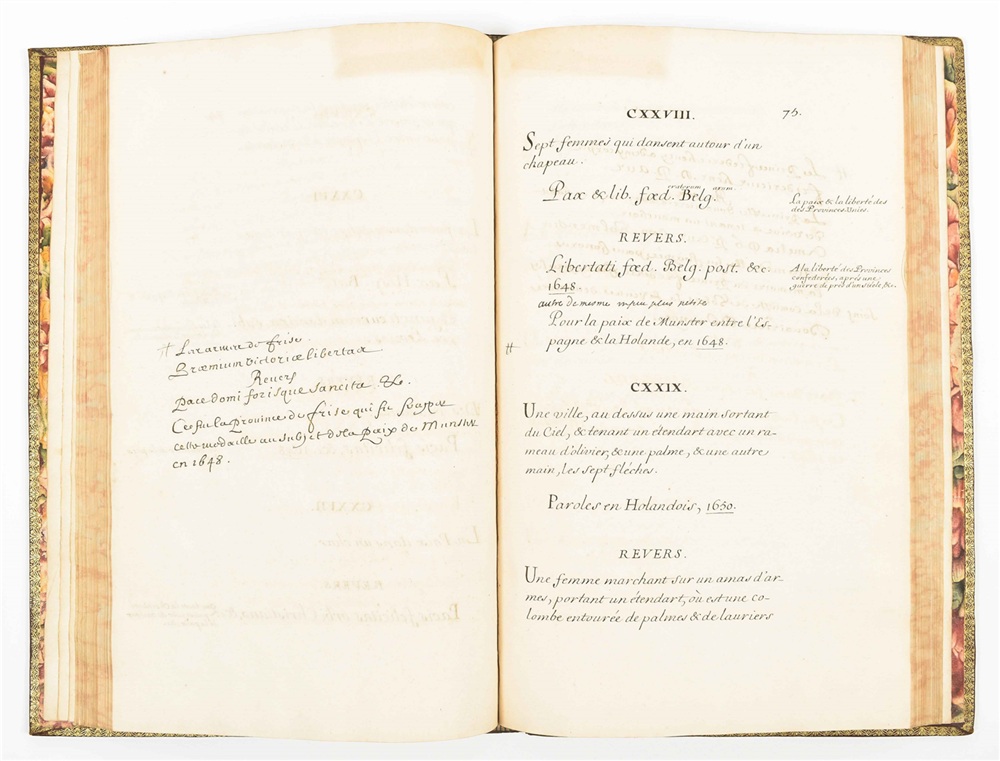 # La rarmee de frise.
Præmium victoriæ libertax
Revers
pace domi forisque sancita. &c.
C'estu la province de frise qui fit frapper
cette medaille au subject de la paix de Munster
en 1648.
CXXVIII. 75.
Sept femmes qui dansent autour d'un
chapeau.
Pax & lib. fœd.eratorum Belg.arum.
La paix & la liberté des
des Provinces-Unies.
REVERS.
Libertati fœd. Belg. post. &c.
1648.
A la liberté des Provinces
confederées, après une
guerre de prés d'un siécle &c.
autre de mesme un peu plus petite
Pour la paix de Munster entre l'Es-
pagne & la Holande, en 1648.
#
CXXIX.
Une ville, au dessus une main sortant
du Ciel, & tenant un étendart avec un ra-
meau d'olivier, & une palme, & une autre
main, les sept fléches.
Paroles en Holandois, 1650.
REVERS.
Une femme marchant sur un amas d'ar-
mes, portant un étendart, où est une co-
lombe entourée de palmes & de lauriers